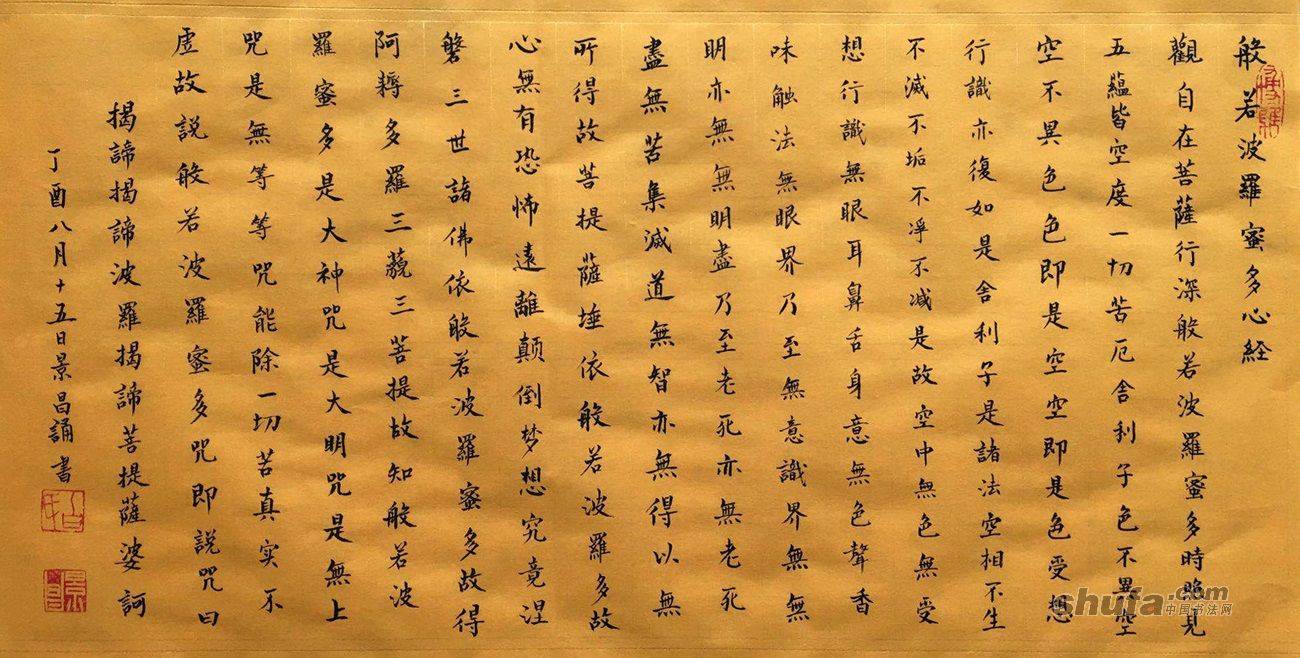 般若波羅蜜多心経
觀自在菩薩行深般若波羅蜜多時照見
五蘊皆空度一切苦厄舎利子色不異空
空不異色色即是空空即是色受想
行識亦復如是舎利子是諸法空相不生
不滅不垢不淨不減是故空中無色無受
想行識無眼耳鼻舌身意無色聲香
味触法無眼界乃至無意識界無無
明亦無無明盡乃至老死亦無老死
盡無苦集滅道無智亦無得以無
所得故菩提薩埵依般若波羅多故
心無有恐怖遠離顛倒梦想究竟涅
磐三世諸佛依般若波羅蜜多故得
阿耨多羅三藐三菩提故知般若波
羅蜜多是大神咒是大明咒是無上
咒是無等等咒能除一切苦真实不
虛故説般若波羅蜜多咒即説咒曰
揭諦揭諦波羅揭諦菩提薩婆訶
丁酉八月十五日景昌誦書
shufa.com
中国书法网